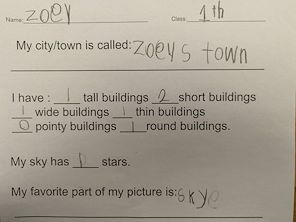 Name: zoey Class 1th
My city/town is called: zoey s town
I have : 1 tall buildings 2 short buildings
1 wide buildings 1 thin buildings
0 pointy buildings 1 round buildings.
My sky has 0 stars.
My favorite part of my picture is: skye